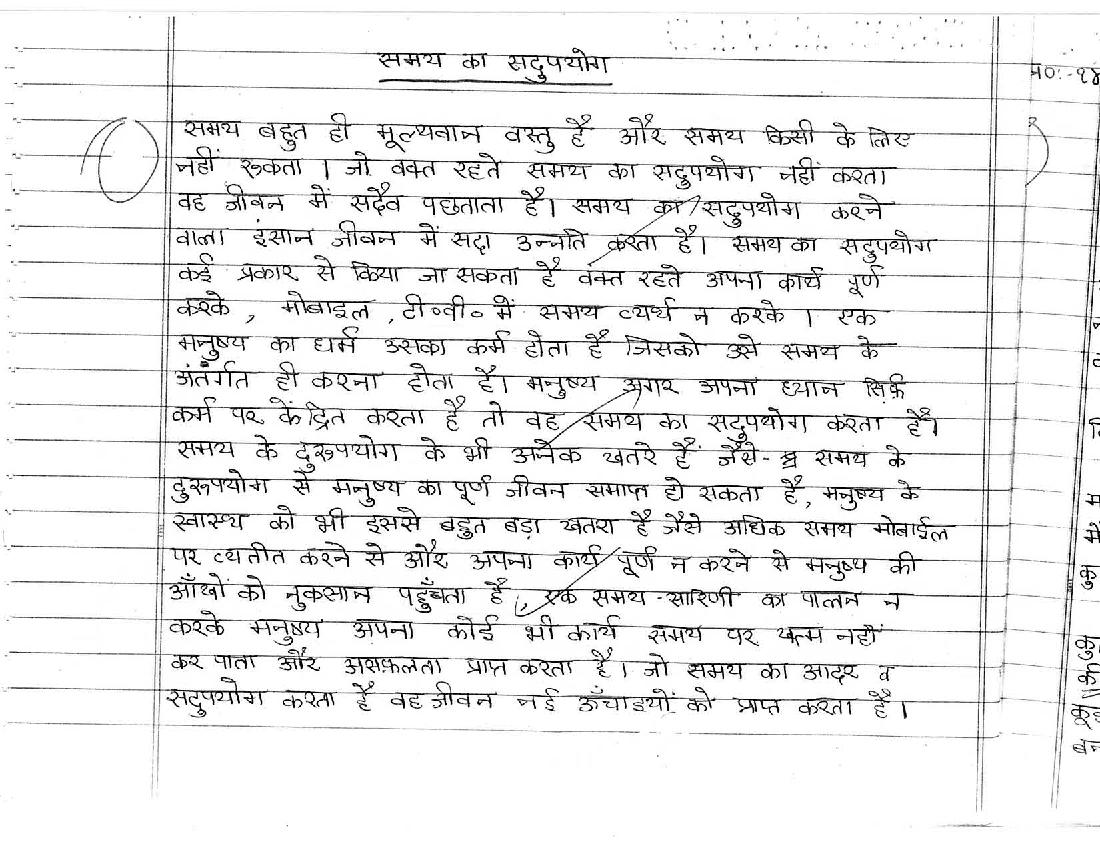 समय का सदुपयोग
प्र०:-१४
समय बहुत ही मूल्यवान वस्तु है और समय किसी के लिए
नहीं रुकता । जो वक्त रहते समय का सदुपयोग नहीं करता
वह जीवन में सदैव पछताता है। समय का सदुपयोग करने
वाला इंसान जीवन में सदा उन्नति करता है। समय का सदुपयोग
कई प्रकार से किया जा सकता है वक्त रहते अपना कार्य पूर्ण
करके , मोबाइल , टी०वी० में समय व्यर्थ न करके । एक
मनुष्य का धर्म उसका कर्म होता है जिसको उसे समय के
अंतर्गत ही करना होता है। मनुष्य अगर अपना ध्यान सिर्फ़
कर्म पर केंद्रित करता है तो वह समय का सदुपयोग करता है।
समय के दुरुपयोग के भी अनेक खतरे हैं जैसे- समय के
दुरुपयोग से मनुष्य का पूर्ण जीवन समाप्त हो सकता है, मनुष्य के
स्वास्थ्य को भी इससे बहुत बड़ा खतरा है जैसे अधिक समय मोबाईल
पर व्यतीत करने से और अपना कार्य पूर्ण न करने से मनुष्य की
आँखों को नुकसान पहुँचता है, एक समय-सारिणी का पालन न
करके मनुष्य अपना कोई भी कार्य समय पर खत्म नहीं
कर पाता और अशफ़लता प्राप्त करता है। जो समय का आदर व
सदुपयोग करता है वह जीवन नई ऊँचाइयों को प्राप्त करता है।